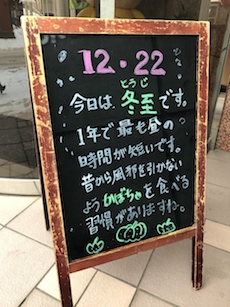 12.22
とうじ
今日は、冬至です。
1年で最も昼の
時間が短いです。
昔から風邪を引かない
ようかぼちゃを食べる
習慣がありますね。